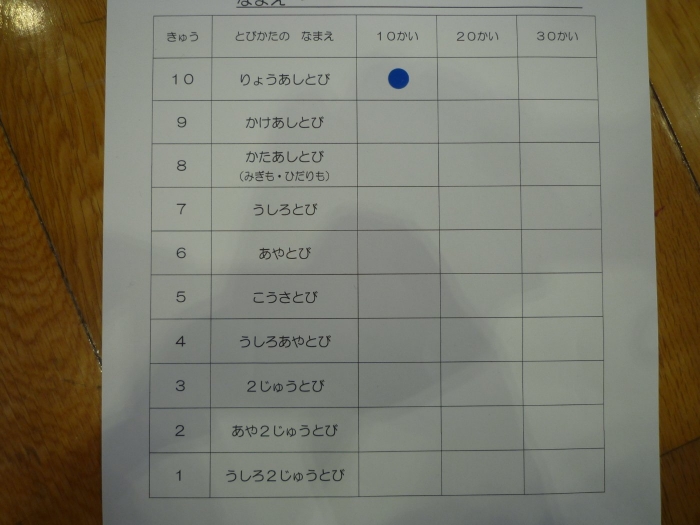 なまえ
きゅう とびかたの なまえ 10かい 20かい 30かい
10 りょうあしとび
9 かけあしとび
8 かたあしとび
(みぎも・ひだりも)
7 うしろとび
6 あやとび
5 こうさとび
4 うしろあやとび
3 2じゅうとび
2 あや2じゅうとび
1 うしろ2じゅうとび